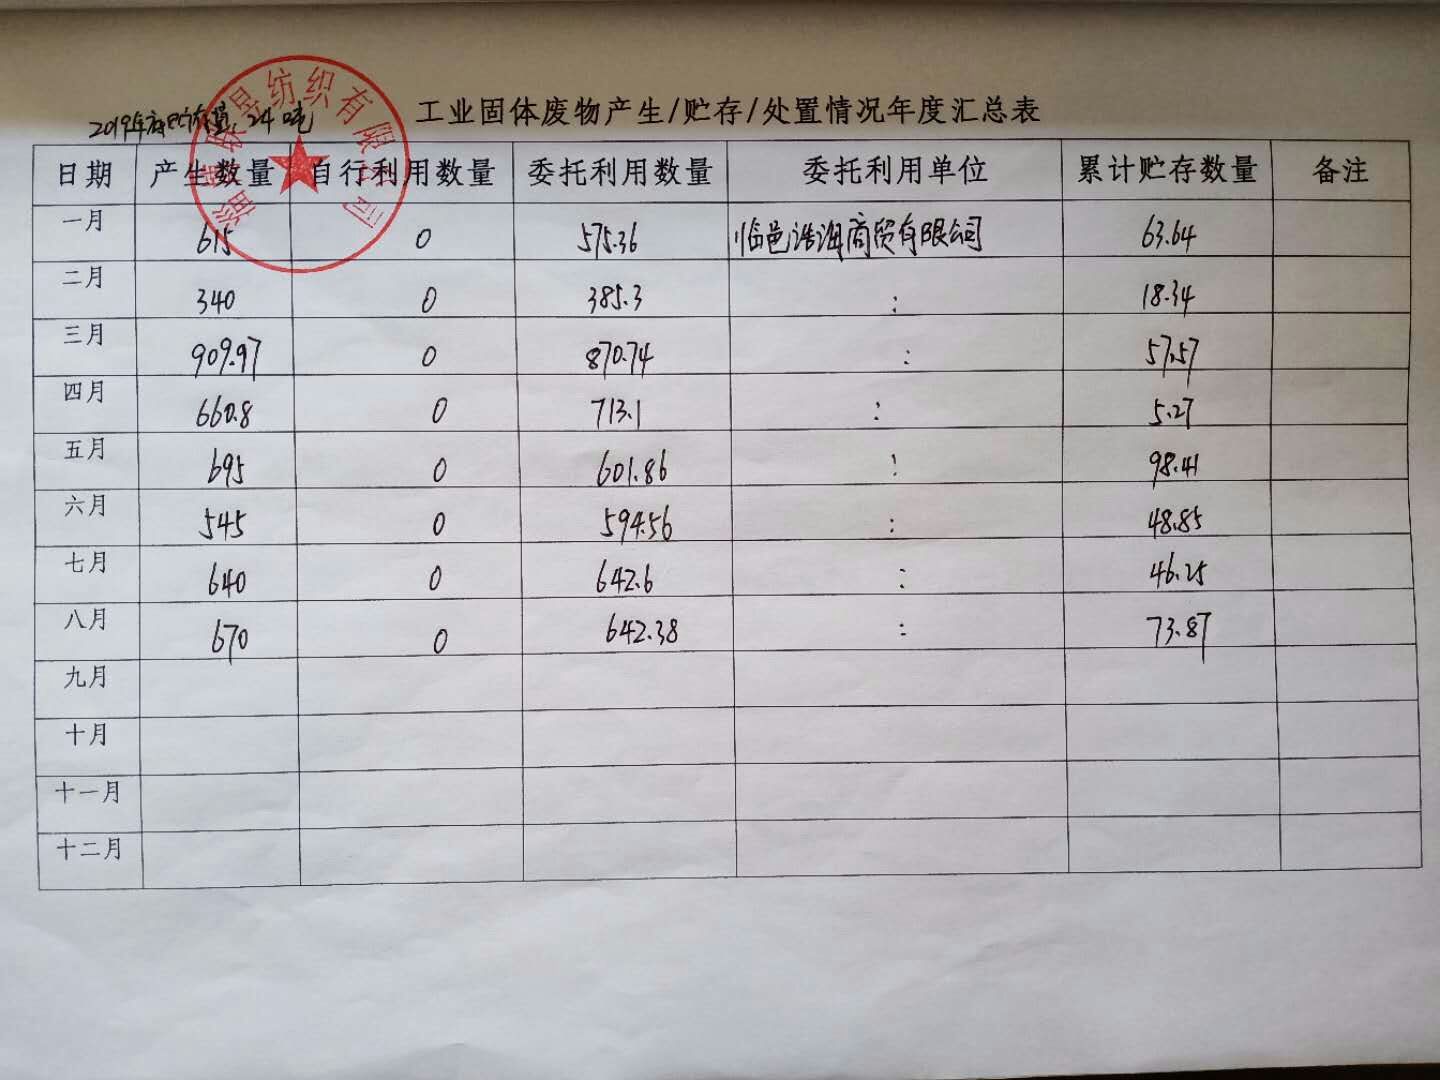 工业固体废物产生/贮存/处置情况年度汇总表
2019年底贮存量 24吨
纺织有限公司
日期 产生数量 自行利用数量 委托利用数量 委托利用单位 累计贮存数量 备注
一月 615 0 575.36 临邑浩海商贸有限公司 63.64
二月 340 0 385.3 : 18.34
三月 909.97 0 870.74 : 57.57
四月 660.8 0 713.1 : 5.27
五月 695 0 601.86 : 98.41
六月 545 0 594.56 : 48.85
七月 640 0 642.6 : 46.25
八月 670 0 642.38 : 73.87
九月
十月
十一月
十二月